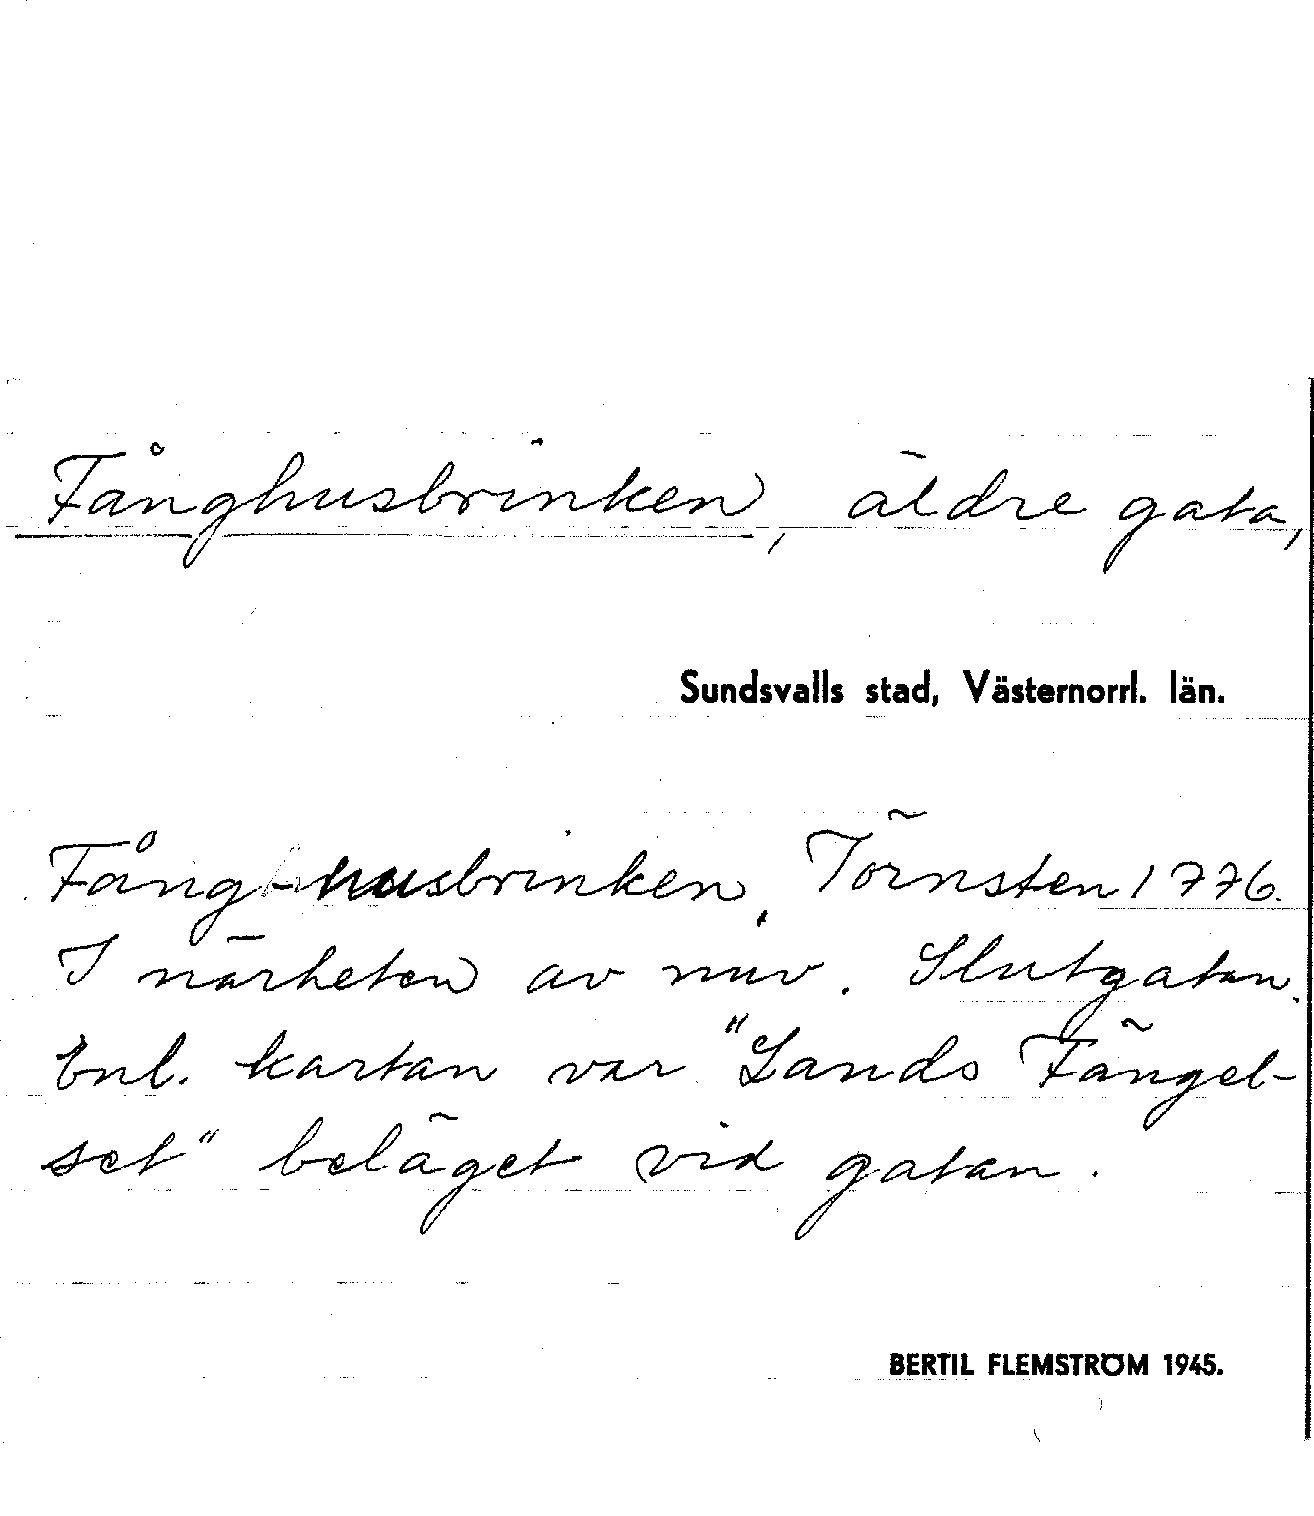 Fånghusbrinken, äldre gata,
Sundsvalls stad, Västernorrl. län.
Fånghusbrinken, Törnsten 1776.
I närheten av nuv. Slutgatan.
Enl. kartan var "Lands Fängel-
set" beläget vid gatan.
BERTIL FLEMSTRÖM 1945.